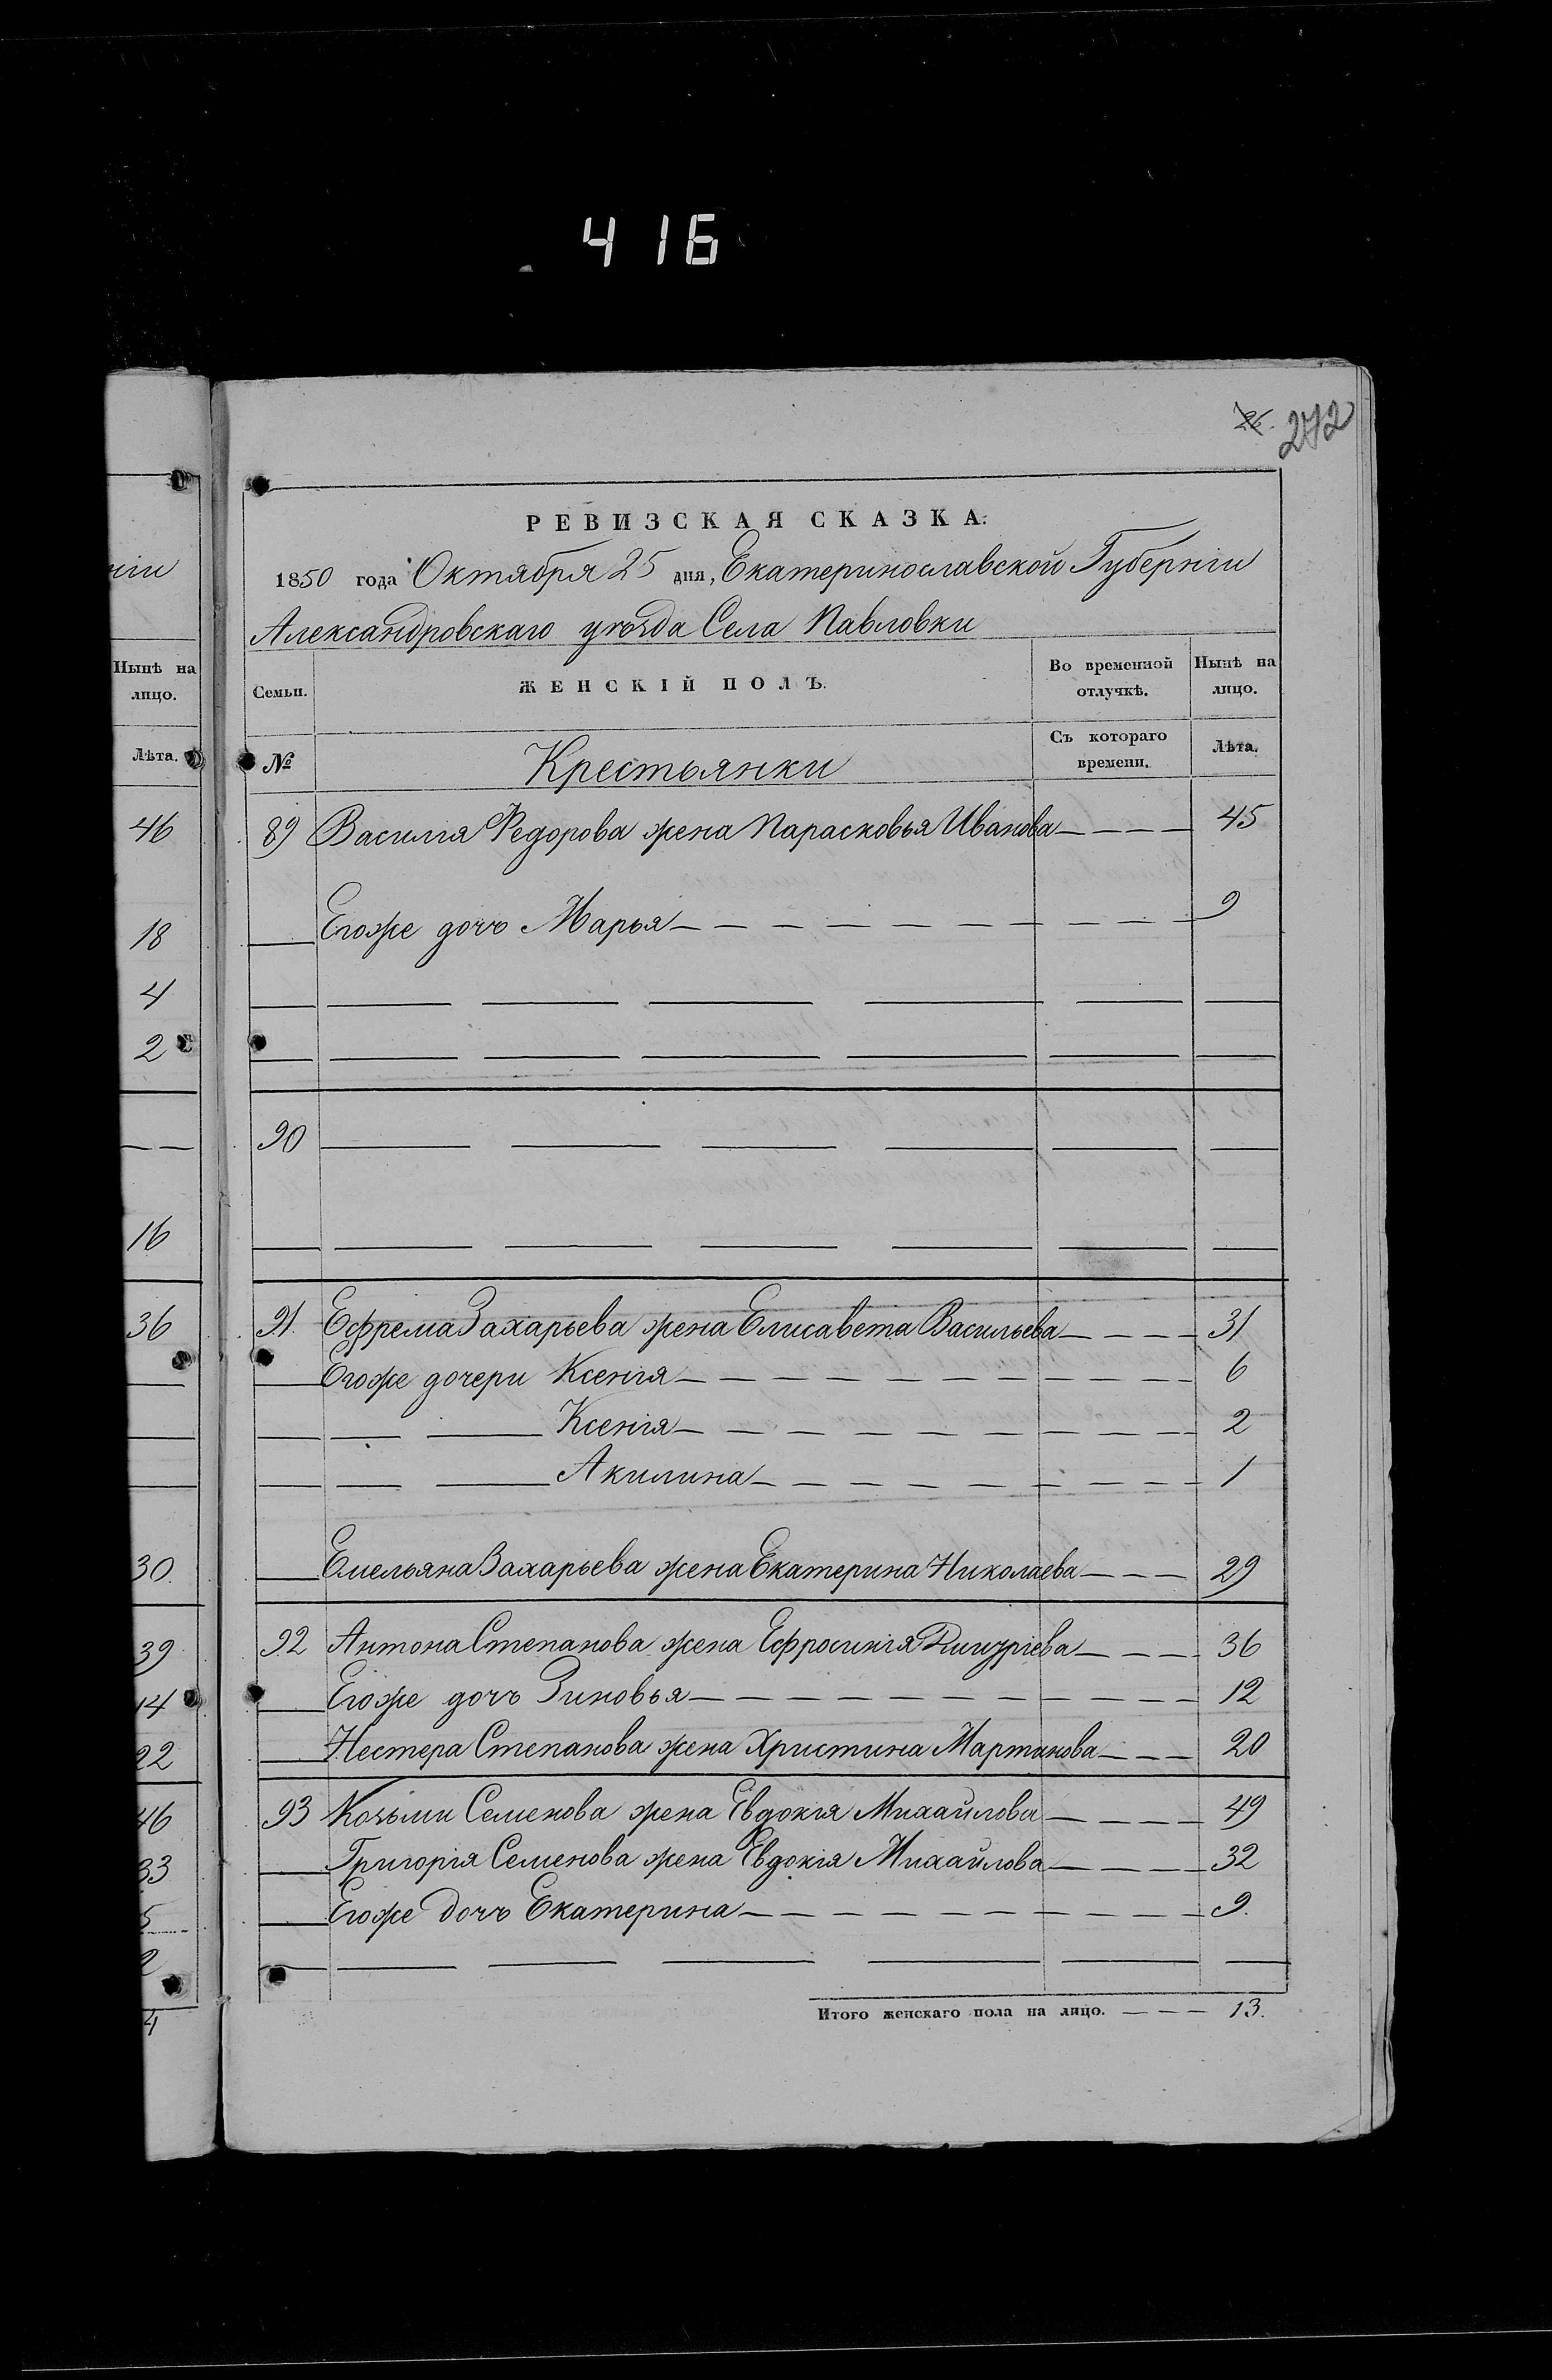 416
272
РЕВИЗСКАЯ СКАЗКА.
1850 года Октября 25 дня, Екатеринославской Губерніи
Александровскаго уѣзда Села Павловки
ніи
Нынѣ на лицо.
Лѣта.
46
18
4
2
16
36
30.
39
14
22
46
33
5
2
4
Семьи.
ЖЕНСКІЙ ПОЛЪ.
Во временной отлучкѣ.
Нынѣ на лицо.
№
Крестьянки
Съ котораго времени.
Лѣта.
89 Василія Федорова жена Парасковья Иванова 45
Егоже дочь Марья 9
90
91. Ефрема Захарьева жена Елисавета Васильева 31
Егоже дочери Ксенія 6
Ксенія 2
Акилина 1
Емельяна Захарьева жена Екатерина Николаева 29
92 Антона Степанова жена Ефросинія 36
Егоже дочь Зиновья 12
Нестера Степанова жена Христина Мартинова 20
93 Козьми Семенова жена Евдокія Михайлова 49
Григорія Семенова жена Евдокія Михайлова 32
Егоже дочь Екатерина 9.
Итого женскаго пола на лицо. 13.